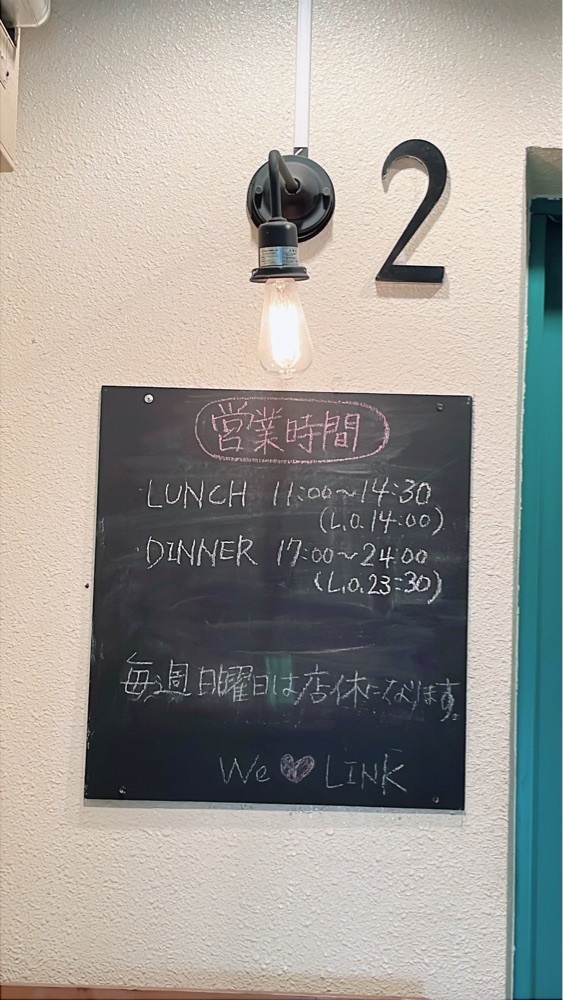 2
営業時間
LUNCH 11:00〜14:30
(L.O.14:00)
DINNER 17:00〜24:00
(L.O.23:30)
毎週日曜日は店休になります。
We ♥ LINK